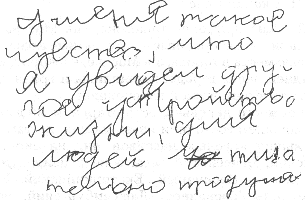 у меня такое
чувство, что
я увидел дру
гое устройство
жизни, для
людей тща
тельно продума